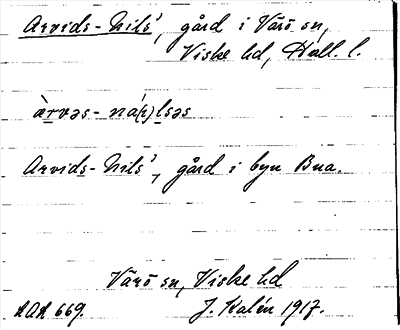 Arvids-Nils', gård i Värö sn,
Viske hd, Hall. l.
àrvəs-ná(ı)lsəs
Arvids-Nils', gård i byn Bua.
Värö sn, Viske hd
AOA 669. J. Kalén 1917.